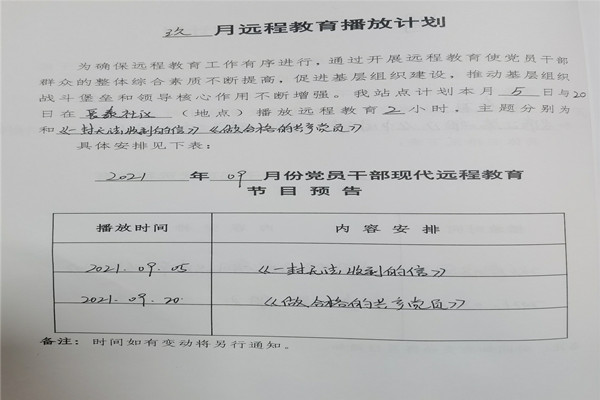 玖 月远程教育播放计划
为确保远程教育工作有序进行，通过开展远程教育使党员干部
群众的整体综合素质不断提高，促进基层组织建设，推动基层组织
战斗堡垒和领导核心作用不断增强。我站点计划本月 5 日与20
日在 长泰社区 （地点）播放远程教育 2 小时，主题分别为
和《一封无法收到的信》《做合格的共产党员》
具体安排见下表：
2021 年 09 月份党员干部现代远程教育
节目预告
播放时间 内容安排
2021.09.05 《一封无法收到的信》
2021.09.20 《做合格的共产党员》
备注：时间如有变动将另行通知。